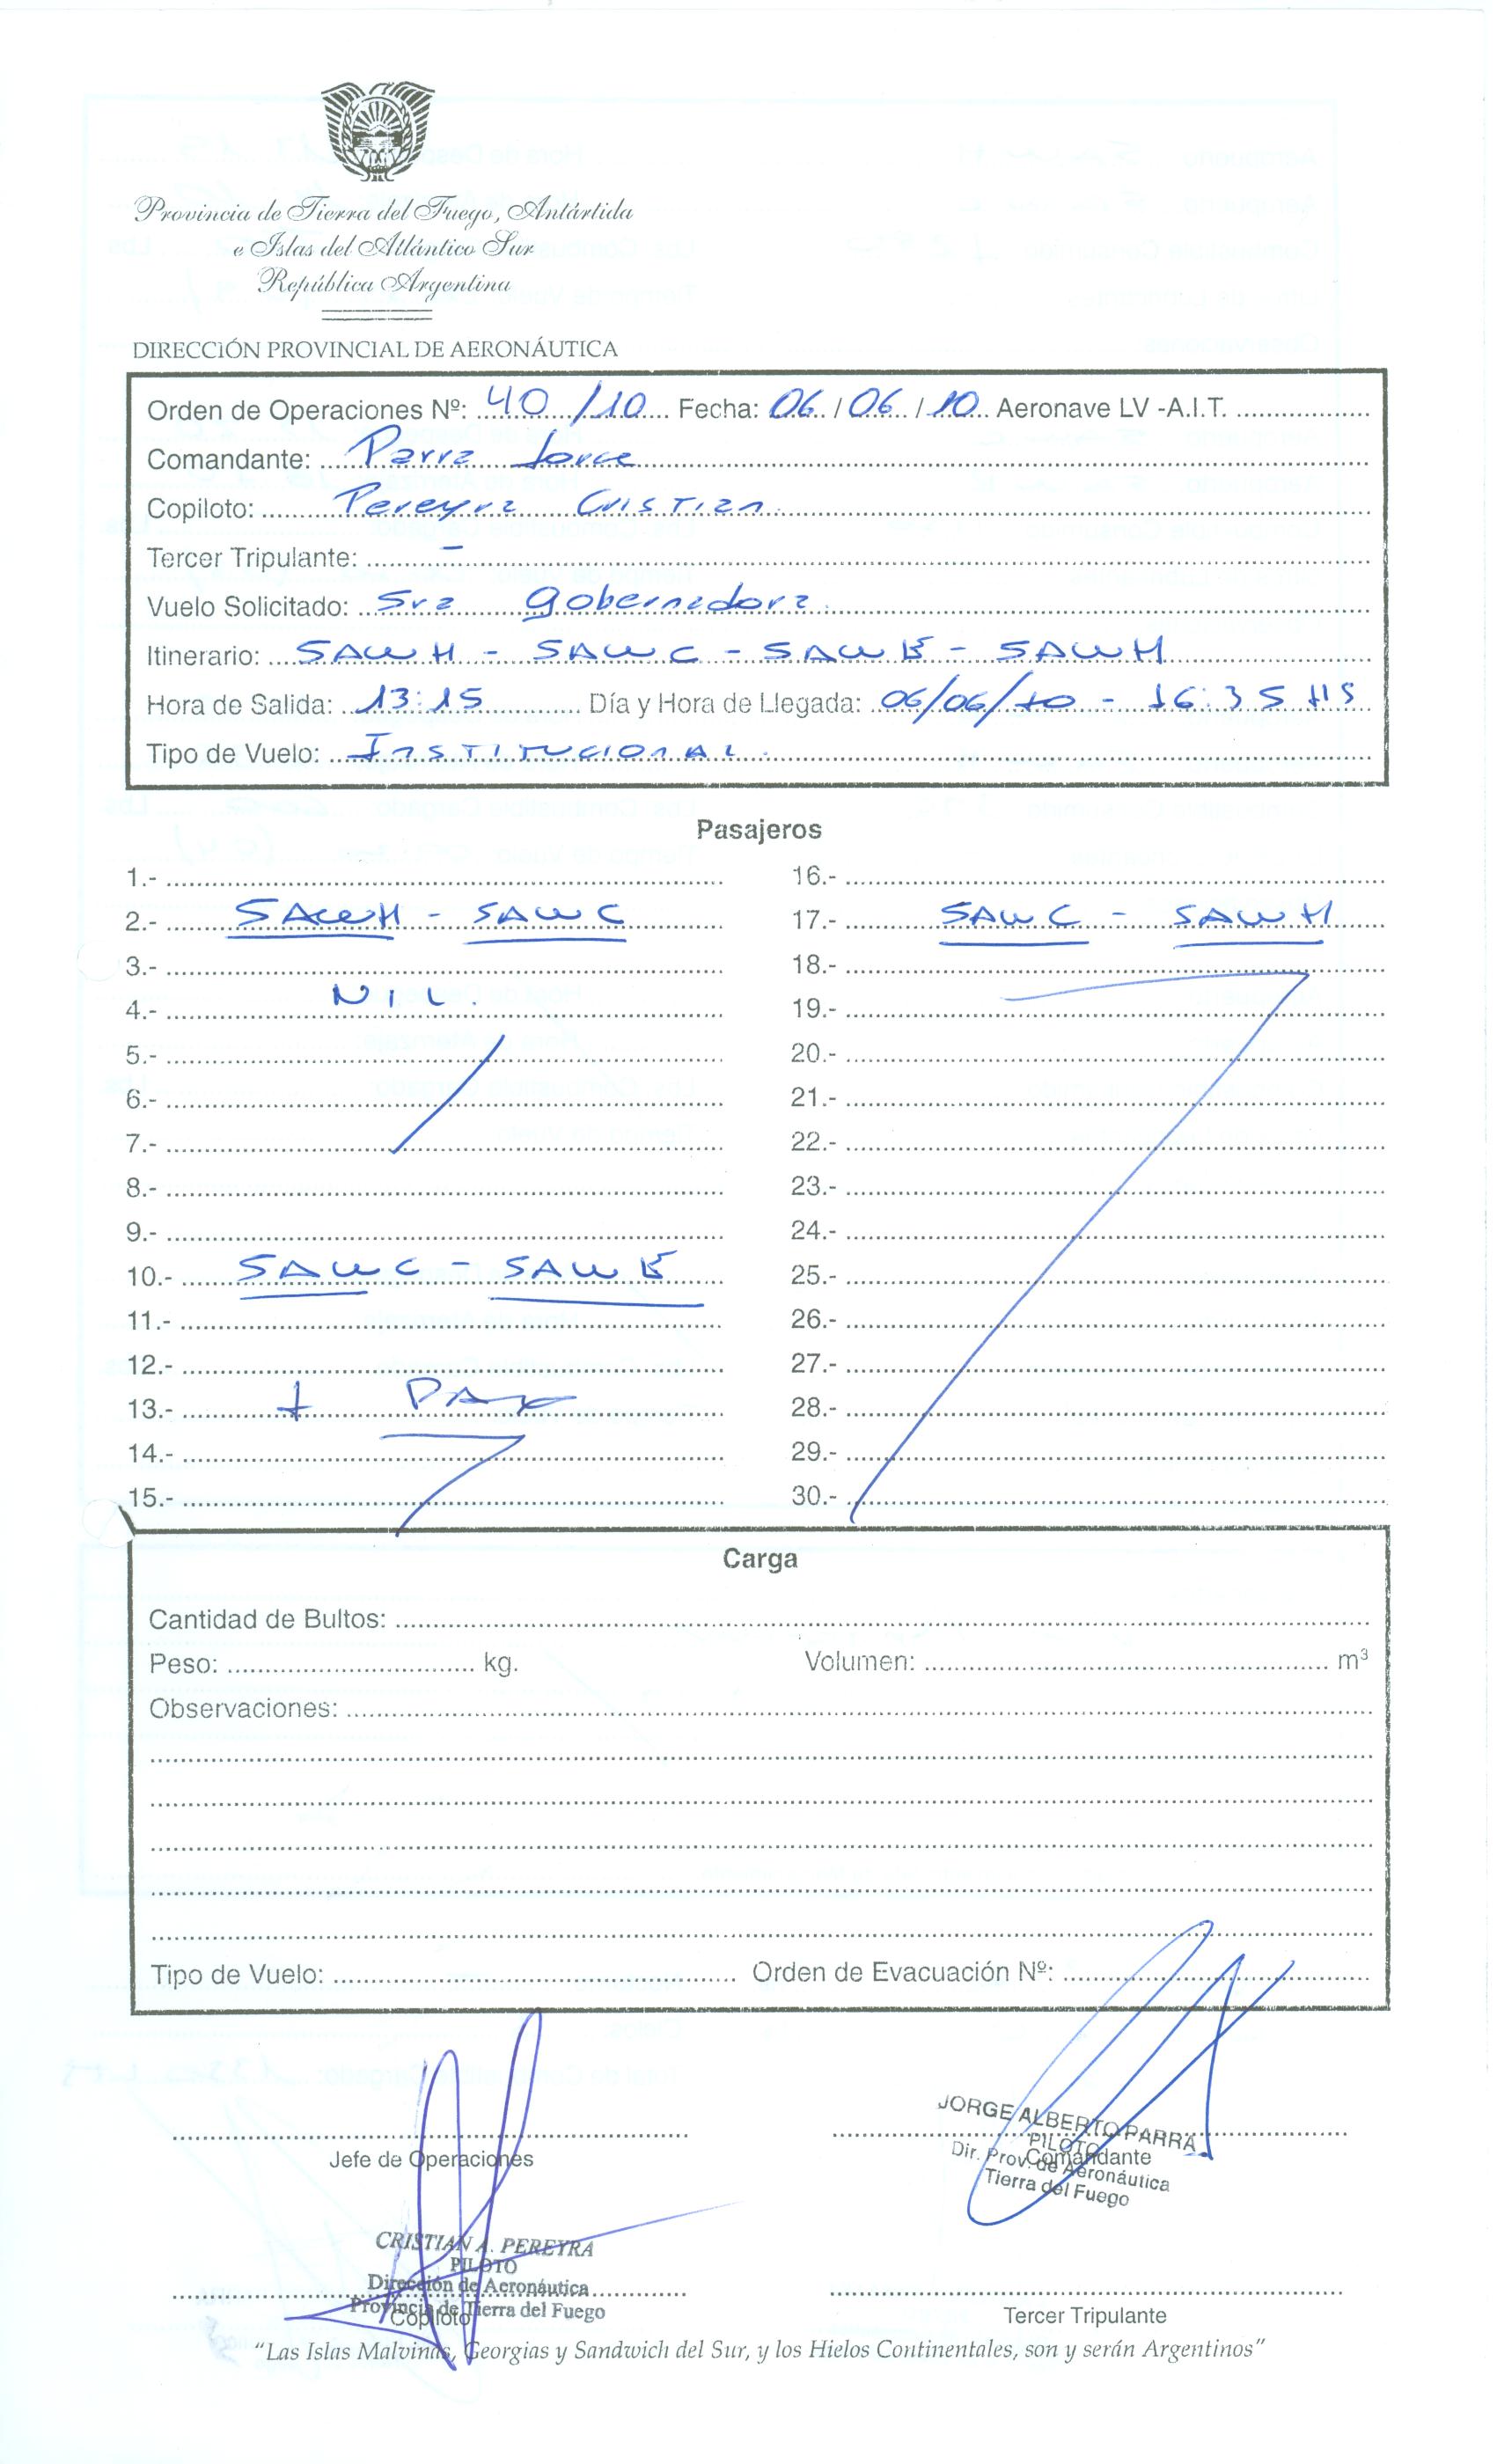 Provincia de Tierra del Fuego, Antártida
e Islas del Atlántico Sur
República Argentina
DIRECCIÓN PROVINCIAL DE AERONÁUTICA
Orden de Operaciones Nº: 40/10 Fecha: 06/06/10 Aeronave LV -A.I.T.
Comandante: Parra Jorge
Copiloto: Pereyra Cristian
Tercer Tripulante: -
Vuelo Solicitado: Sra Gobernadora
Itinerario: SAWH - SAWC - SAWE - SAWH
Hora de Salida: 13:15 Día y Hora de Llegada: 06/06/10 - 16:35 HS
Tipo de Vuelo: Institucional
Pasajeros
1.- 16.-
2.- SAWH - SAWC 17.- SAWC - SAWH
3.- 18.-
4.- NIL. 19.-
5.- 20.-
6.- 21.-
7.- 22.-
8.- 23.-
9.- 24.-
10.- SAWC - SAWE 25.-
11.- 26.-
12.- 27.-
13.- 1 PAX 28.-
14.- 29.-
15.- 30.-
Carga
Cantidad de Bultos:
Peso: kg. Volumen: m³
Observaciones:
Tipo de Vuelo: Orden de Evacuación Nº:
JORGE ALBERTO PARRA
PILOTO
Dir. Prov. de Aeronáutica
Tierra del Fuego
Jefe de Operaciones Comandante
CRISTIAN A. PEREYRA
PILOTO
Dirección de Aeronáutica
Provincia de Tierra del Fuego
Copiloto Tercer Tripulante
"Las Islas Malvinas, Georgias y Sandwich del Sur, y los Hielos Continentales, son y serán Argentinos"